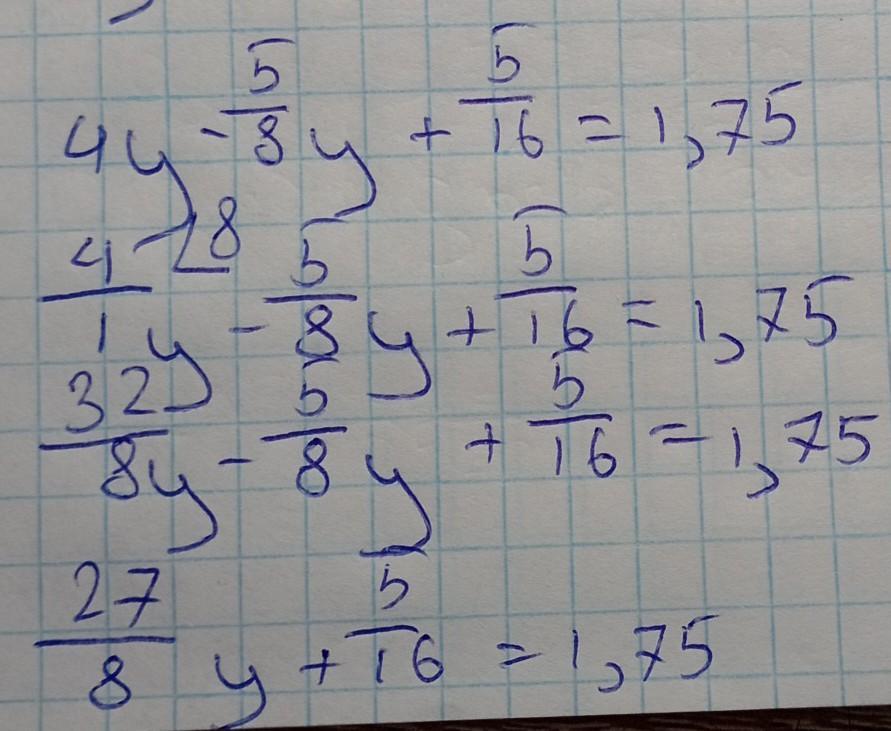 4y - 5/8 y + 5/16 = 1,75
4/1 y ⌊8 - 5/8 y + 5/16 = 1,75
32/8 y - 5/8 y + 5/16 = 1,75
27/8 y + 5/16 = 1,75